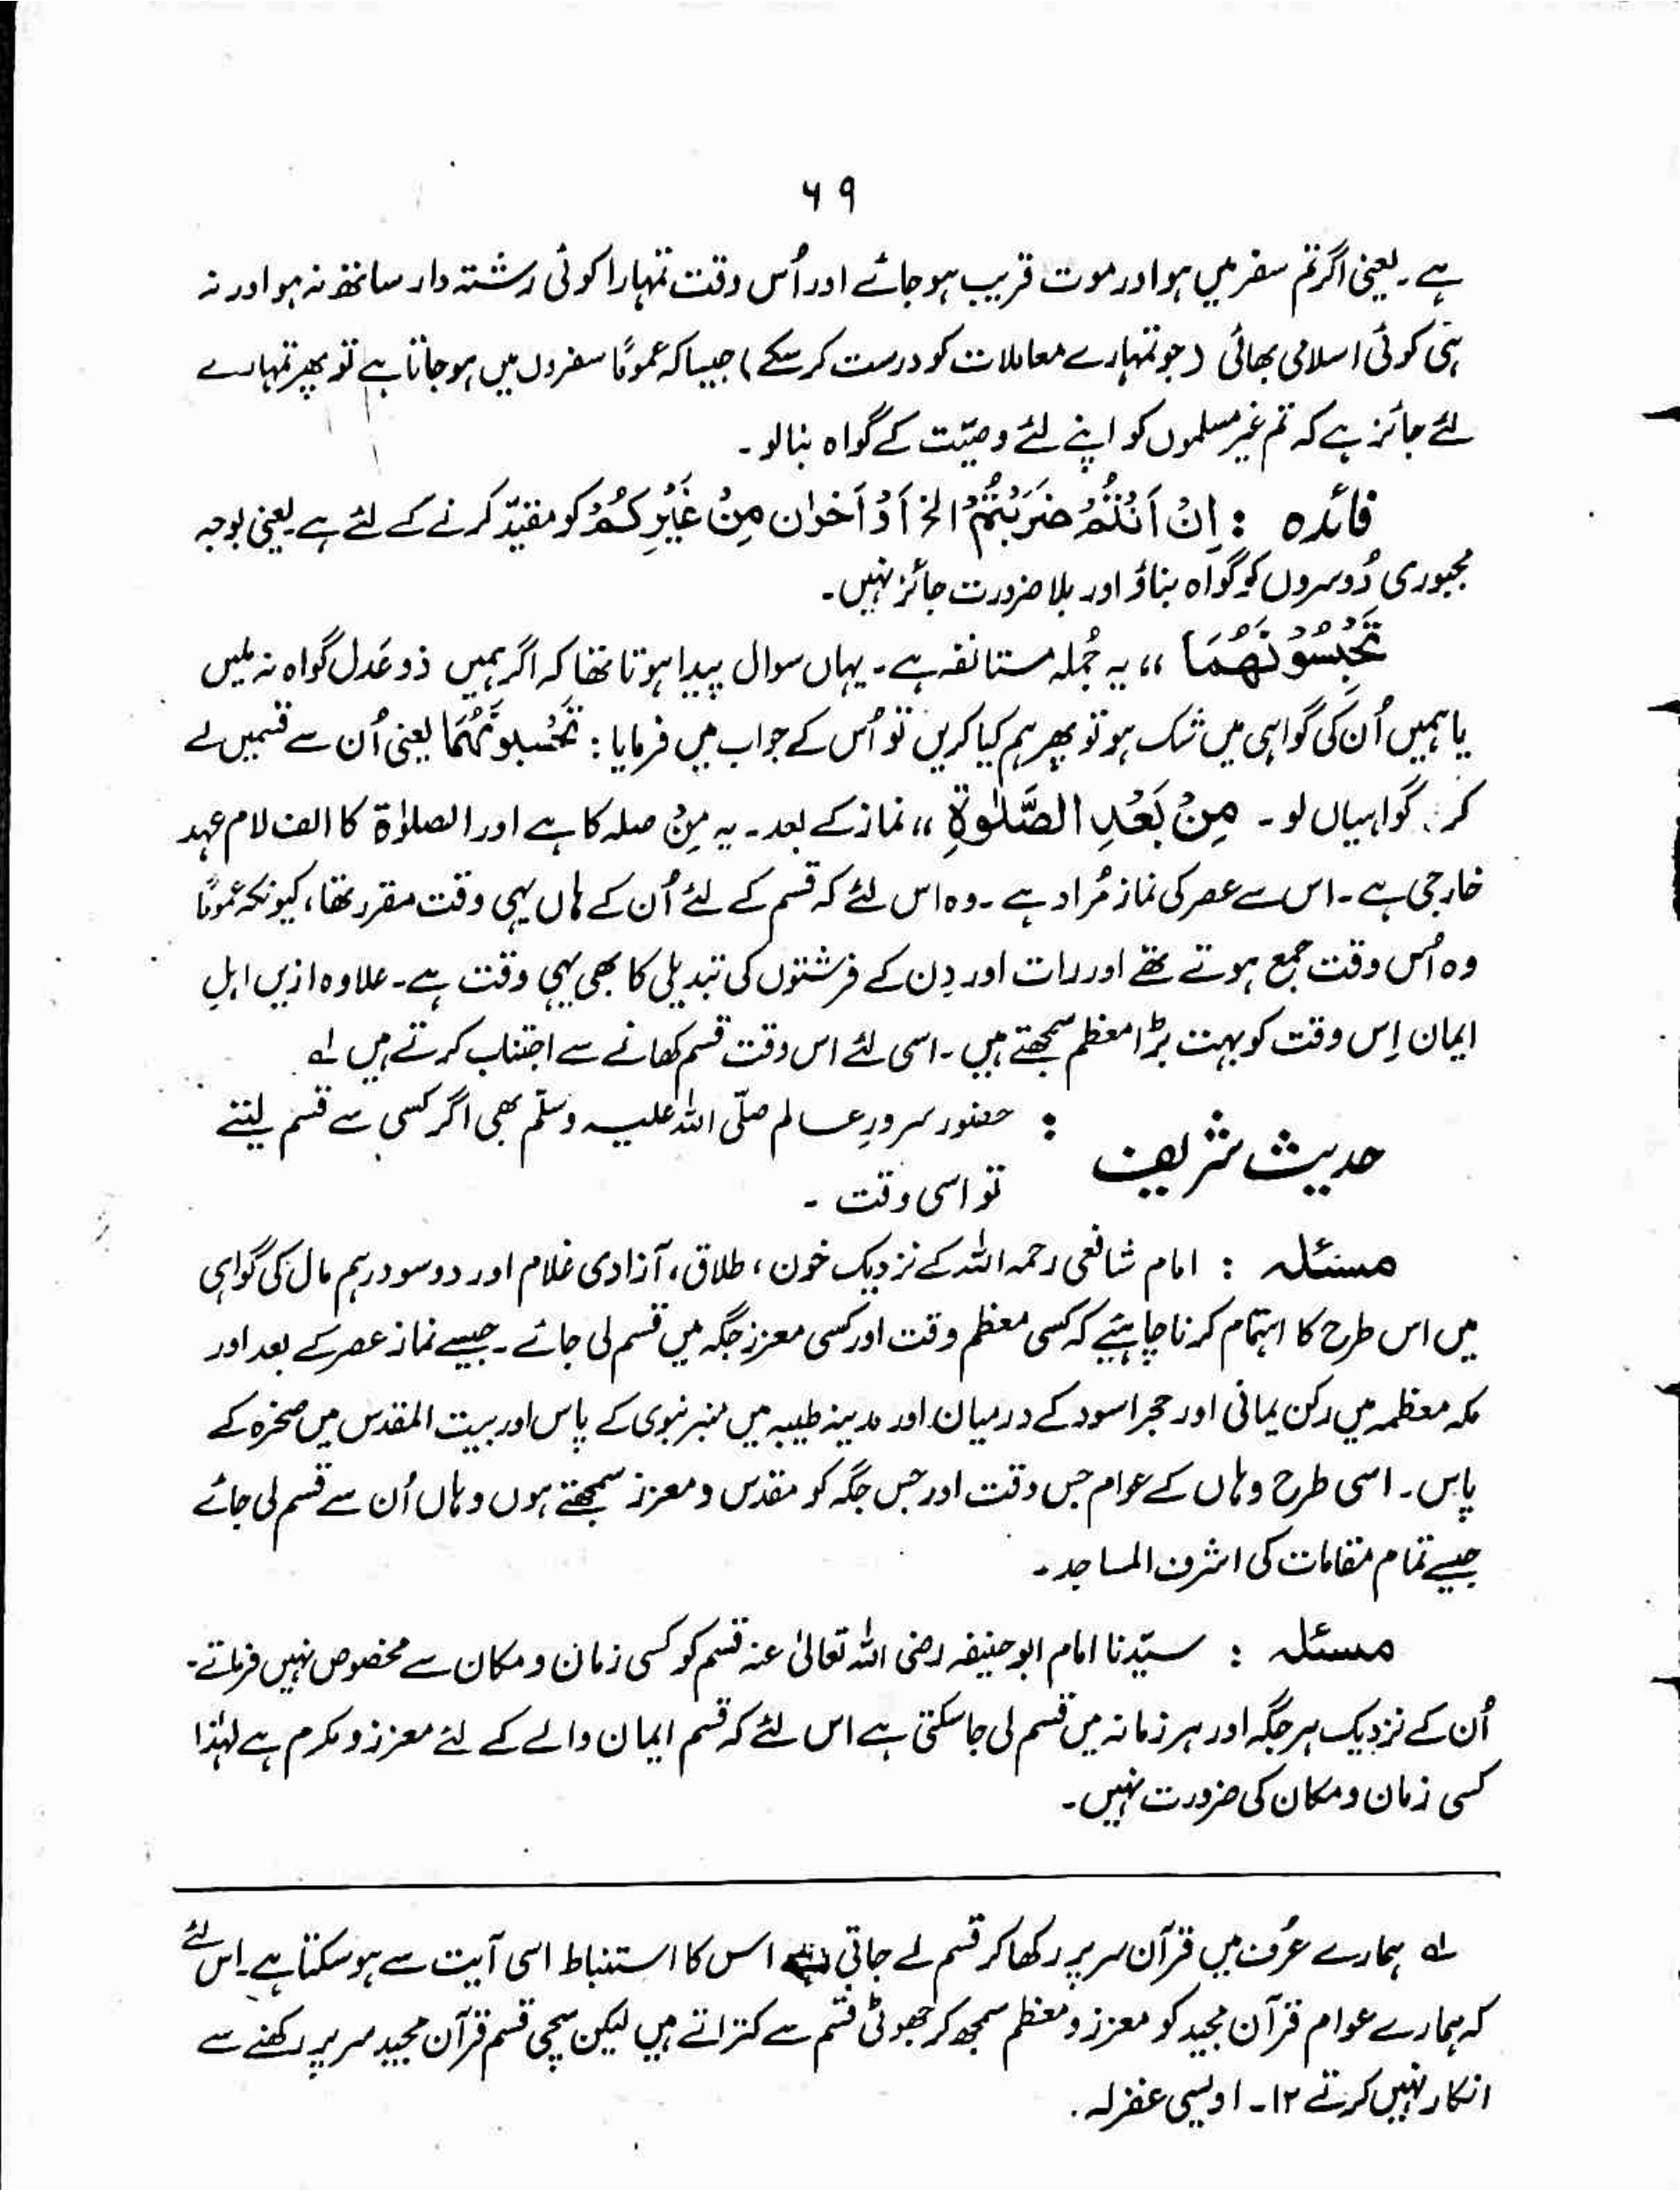 ۶۹
ہے۔ یعنی اگر تم سفر میں ہو اور موت قریب ہو جائے اور اُس وقت تمہارا کوئی رشتہ دار ساتھ نہ ہو اور نہ
ہی کوئی اسلامی بھائی (جو تمہارے معاملات کو درست کر سکے) جیسا کہ عموماً سفروں میں ہو جاتا ہے تو پھر تمہارے
لئے جائز ہے کہ تم غیر مسلموں کو اپنے لئے وصیّت کے گواہ بنا لو۔
فائدہ : اِنْ اَنْتُمْ ضَرَبْتُمْ الخ اَوْ اَخَرٰن مِنْ غَيْرِكُمْ کو مقیّد کرنے کے لئے ہے یعنی بوجہ
مجبوری دُوسروں کو گواہ بناؤ اور بلا ضرورت جائز نہیں۔
تَحْبِسُوْنَهُمَا ،، یہ جُملہ مستانفہ ہے۔ یہاں سوال پیدا ہوتا تھا کہ اگر ہمیں ذو عَدل گواہ نہ ملیں
یا ہمیں اُن کی گواہی میں شک ہو تو پھر ہم کیا کریں تو اُس کے جواب میں فرمایا : تَحْبِسُونَهُمَا یعنی اُن سے قسمیں لے
کر گواہیاں لو۔ مِنْ بَعْدِ الصَّلٰوةِ ،، نماز کے بعد۔ یہ مِنْ صلہ کا ہے اور الصلوٰۃ کا الف لام عہد
خارجی ہے۔ اس سے عصر کی نماز مُراد ہے۔ وہ اس لئے کہ قسم کے لئے اُن کے ہاں یہی وقت مقرر تھا، کیونکہ عموماً
وہ اُس وقت جمع ہوتے تھے اور رات اور دِن کے فرشتوں کی تبدیلی کا بھی یہی وقت ہے۔ علاوہ ازیں اہلِ
ایمان اِس وقت کو بہت بڑا معظم سمجھتے ہیں۔ اسی لئے اس وقت قسم کھانے سے اجتناب کرتے ہیں لہ
حدیث شریف : حضور سرورِ عالم صلّی اللہ علیہ وسلّم بھی اگر کسی سے قسم لیتے
تو اسی وقت ۔
مسئلہ : امام شافعی رحمہ اللہ کے نزدیک خون، طلاق، آزادی غلام اور دو سو درہم مال کی گواہی
میں اس طرح کا اہتمام کرنا چاہئیے کہ کسی معظم وقت اور کسی معزز جگہ میں قسم لی جائے۔ جیسے نماز عصر کے بعد اور
مکہ معظمہ میں رکن یمانی اور حجر اسود کے درمیان اور مدینہ طیبہ میں منبر نبوی کے پاس اور بیت المقدس میں صخرہ کے
پاس۔ اسی طرح وہاں کے عوام جس وقت اور جس جگہ کو مقدس و معزز سمجھتے ہوں وہاں اُن سے قسم لی جائے
جیسے تمام مقامات کی اشرف المساجد۔
مسئلہ : سیّدنا امام ابو حنیفہ رضی اللہ تعالیٰ عنہ قسم کو کسی زمان و مکان سے مخصوص نہیں فرماتے۔
اُن کے نزدیک ہر جگہ اور ہر زمانہ میں قسم لی جا سکتی ہے اس لئے کہ قسم ایمان والے کے لئے معزز و مکرم ہے لہٰذا
کسی زمان و مکان کی ضرورت نہیں۔
لہ ہمارے عُرف میں قرآن سر پر رکھا کر قسم لے جاتی ہے اس کا استنباط اسی آیت سے ہو سکتا ہے۔ اس لئے
کہ ہمارے عوام قرآن مجید کو معزز و معظم سمجھ کر جھوٹی قسم سے کتراتے ہیں لیکن سچی قسم قرآن مجید سر پر رکھنے سے
انکار نہیں کرتے ۱۲۔ اویسی غفرلہ.